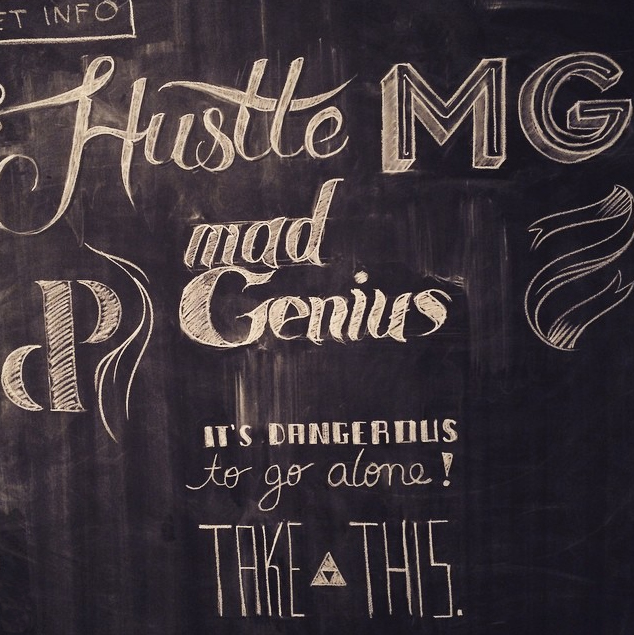 ET INFO
Hustle MG
mad
Genius
P
IT'S DANGEROUS
to go alone!
TAKE THIS.